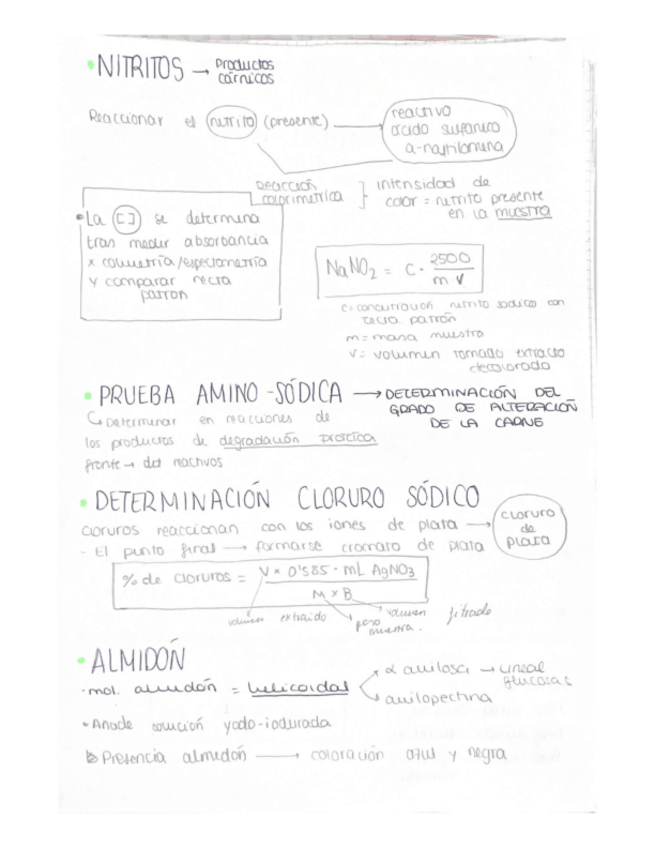 • NITRITOS → Productos
cárnicos
Reaccionar el nitrito (presente) → reactivo
ácido sulfanico
a-naftilamina
Reacción
colorimetrica } intensidad de
color = nitrito presente
en la muestra
• La [ ] se determina
tras medir absorbancia
x colimetría/espectometría
y comparar recta
patron
NaNO2 = C · 2500 / m v
c = concentracion nitrito sodico con
recta patrón
m = masa muestra
v = volumen tomado extracto
decolorado
• PRUEBA AMINO-SÓDICA → DETERMINACIÓN DEL
GRADO DE ALTERACIÓN
DE LA CARNE
↳ Determinar en reacciones de
los productos de degradación proteica
frente → det reactivos
• DETERMINACIÓN CLORURO SÓDICO
cloruros reaccionan con los iones de plata → cloruro
de
plata
- El punto final → formarse cromato de plata
% de cloruros = V x 0'585 · mL AgNO3 / M x B
volumen extraido
peso
muestra.
volumen filtrado
• ALMIDÓN
- mol. almidón = helicoidal
α amilosa → lineal
glucosas
amilopectina
• Añade solución yodo-iodurada
Presencia almidón → coloración azul y negra